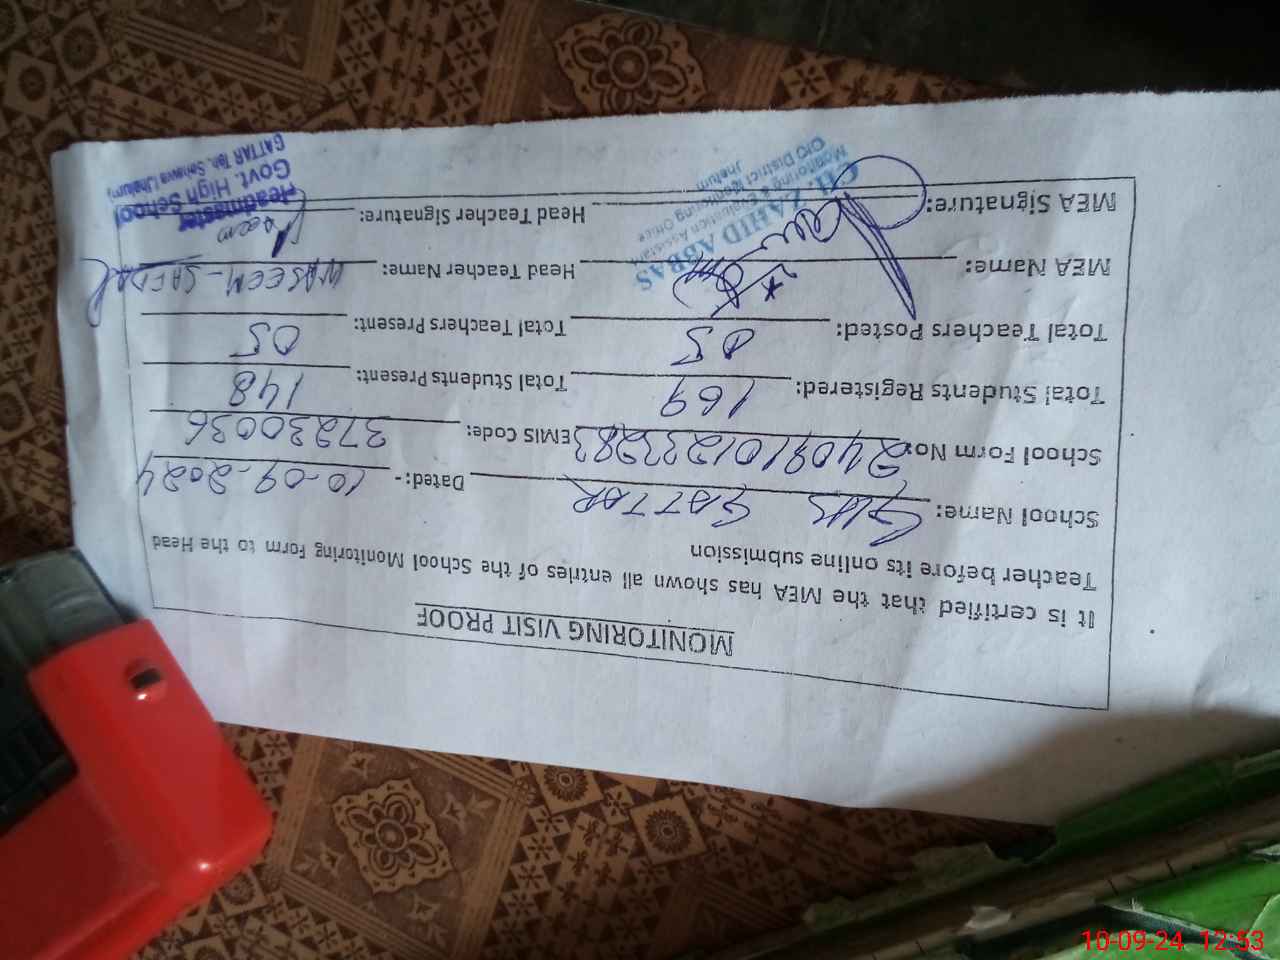 MONITORING VISIT PROOF
It is certified that the MEA has shown all entries of the School Monitoring Form to the Head
Teacher before its online submission
School Name: GHS GATTAR Dated:- 10-09-2024
School Form No: 240910123328 EMIS Code: 37230036
Total Students Registered: 169 Total Students Present: 148
Total Teachers Posted: 05 Total Teachers Present: 05
MEA Name: Head Teacher Name: WASEEM-SAFDAR
MEA Signature: Head Teacher Signature: Waseem
CH. ZAHID ABBAS
Monitoring & Evaluation Assistant
O/O District Monitoring Office
Jhelum
Headmaster
Govt. High School
GATTAR Teh. Sohawa (Jhelum)
10-09-24 12:53